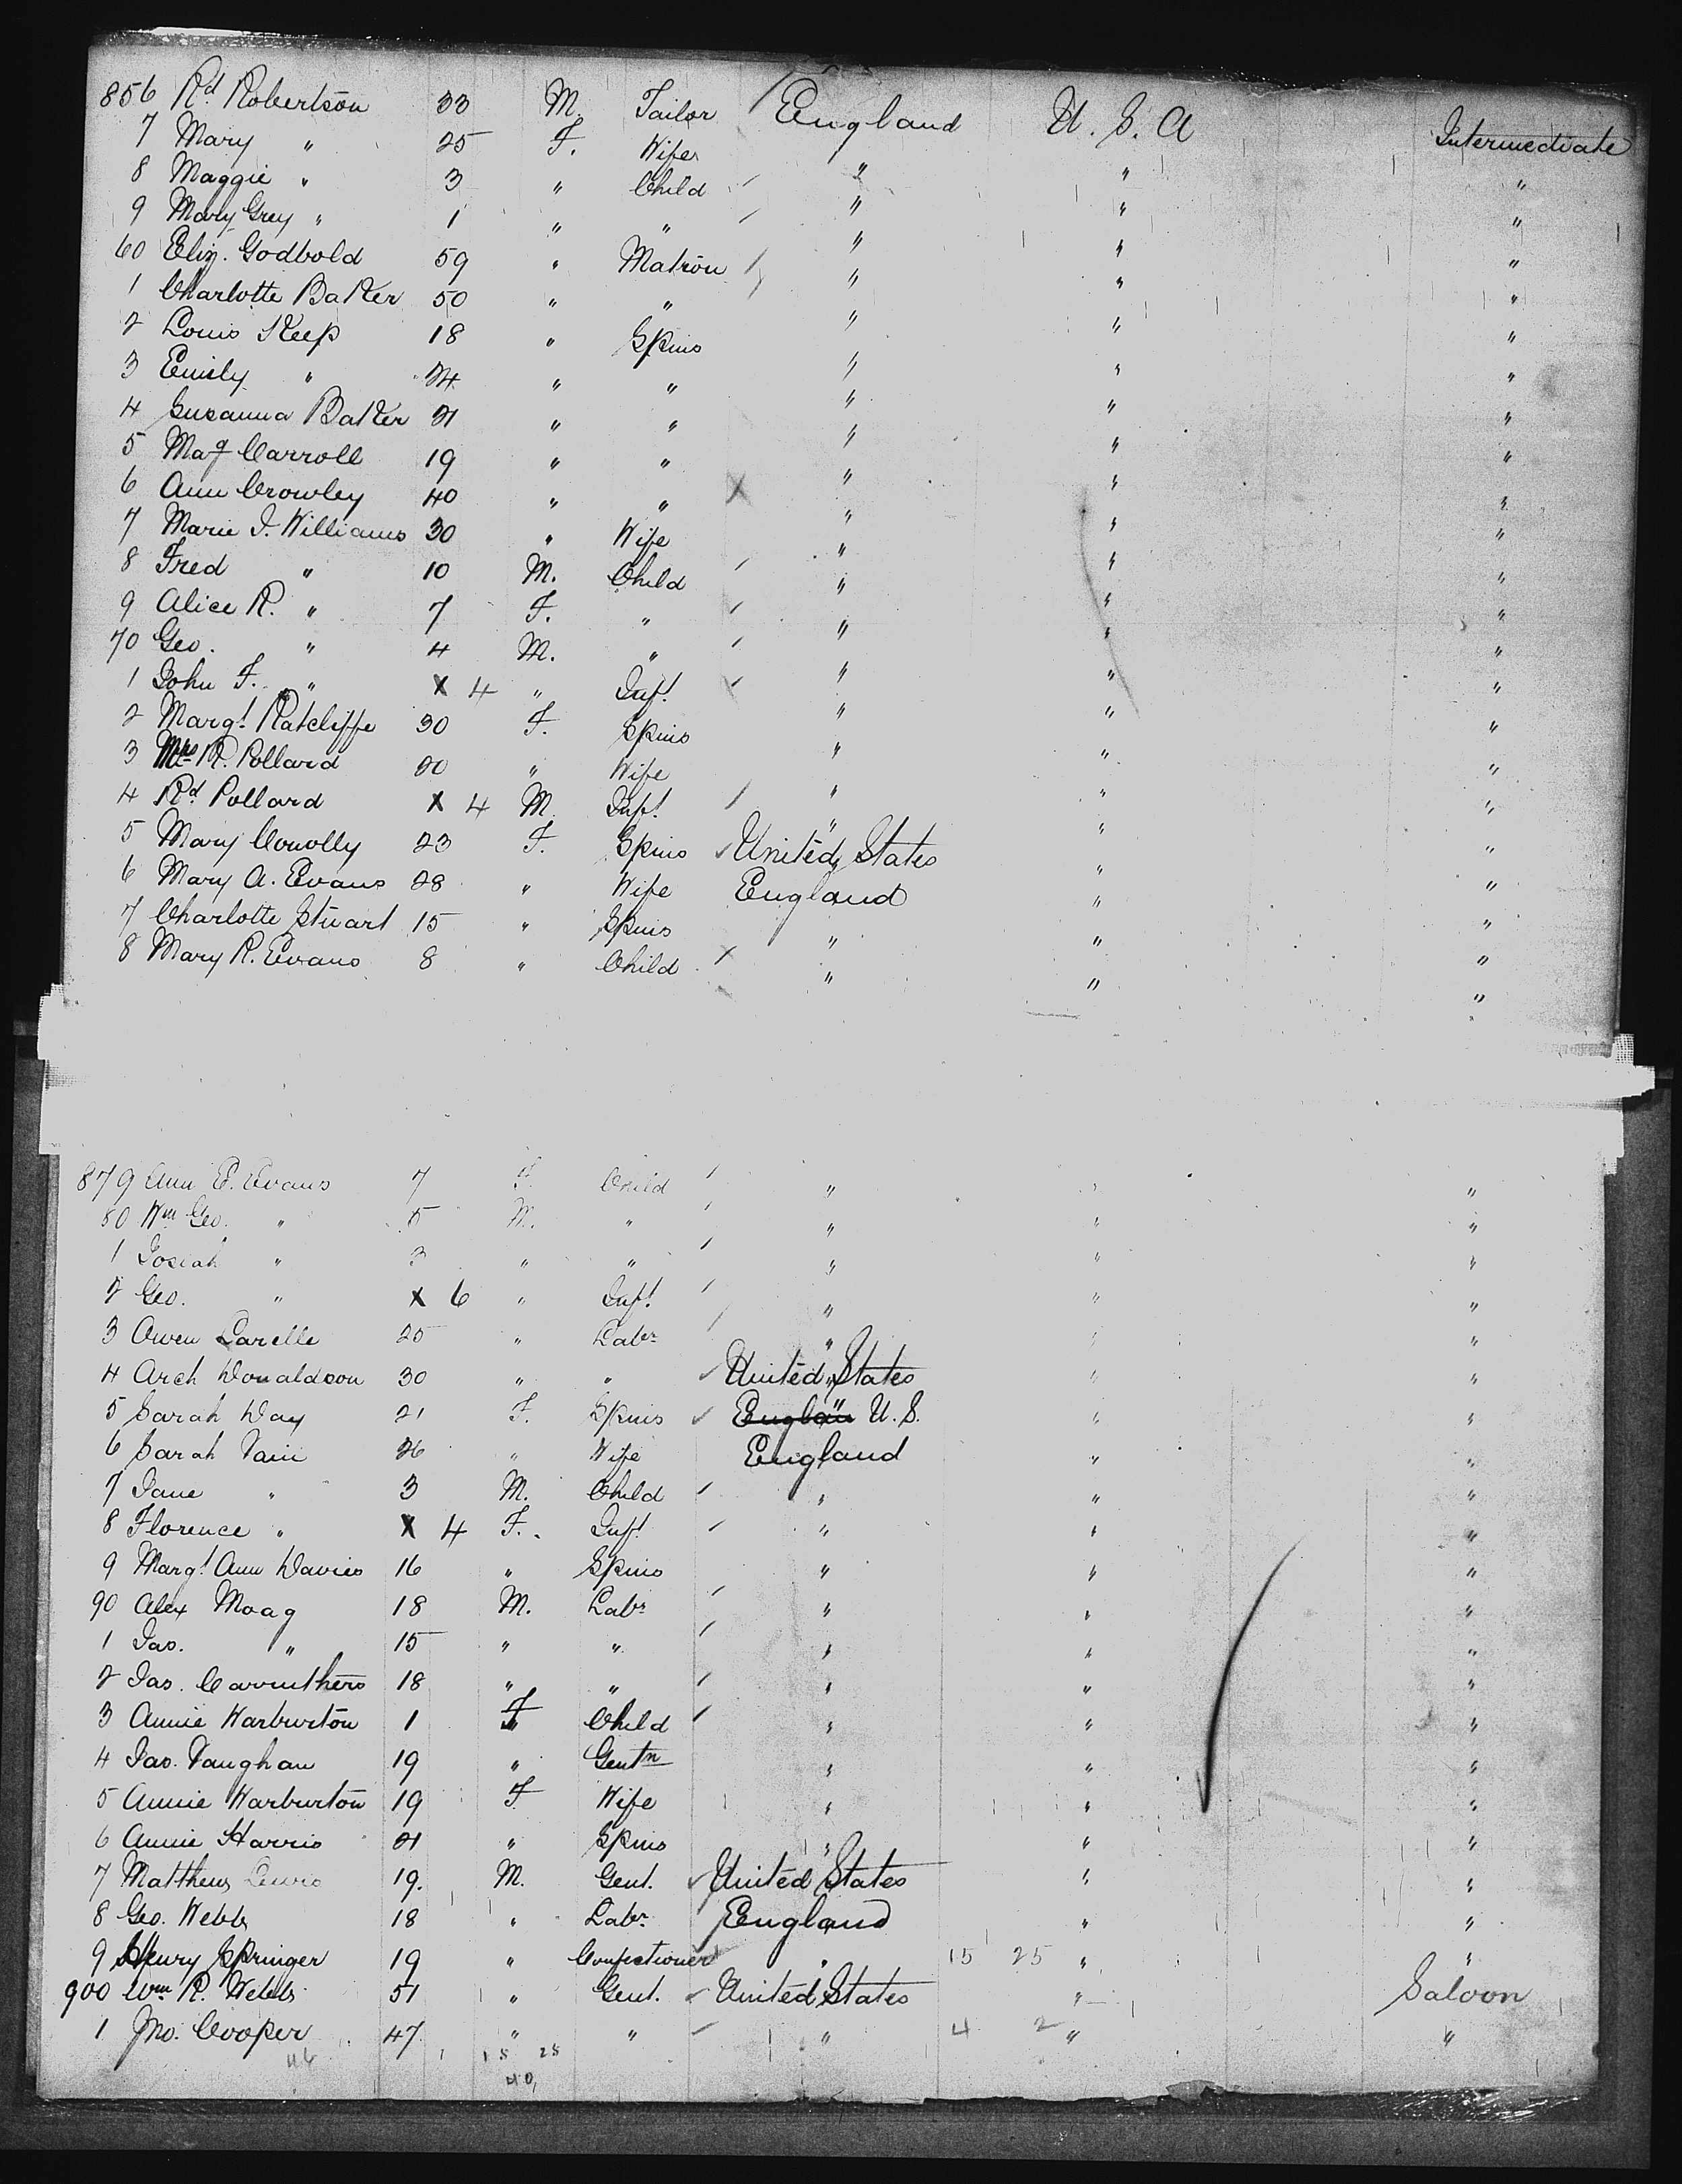 856 Rd. Robertson 33 M. Tailor England U. S. A Intermediate
7 Mary " 25 F. Wife " " "
8 Maggie " 3 " Child " " "
9 Mary Grey " 1 " " " " "
60 Eliz. Godbold 59 " Matron " " "
1 Charlotte Barker 50 " " " " "
2 Louis Keep 18 " Spins " " "
3 Emily " 24 " " " " "
4 Susanna Barker 21 " " " " "
5 Mag Carroll 19 " " " " "
6 Ann Crowley 40 " " X " " "
7 Marie J. Williams 30 " Wife " " "
8 Fred " 10 M. Child " " "
9 Alice R. " 7 F. " " " "
70 Geo. " 4 M. " " " "
1 John F. " X 4 " Inft. " " "
2 Margt. Ratcliffe 30 F. Spins " " "
3 Mrs R. Pollard 20 " Wife " " "
4 Rd. Pollard X 4 M. Inft. " " "
5 Mary Conolly 23 F. Spins United States " "
6 Mary A. Evans 28 " Wife England " "
7 Charlotte Stuart 15 " Spins " " "
8 Mary R. Evans 8 " Child " " "
879 Ann E. Evans 7 F. Child " " "
80 Wm Geo. " 5 M. " " " "
1 Josiah " 3 " " " " "
2 Geo. " X 6 " Inft. " " "
3 Owen Larelle 25 " Labr " " "
4 Arch Donaldson 30 " " United States " "
5 Sarah Day 21 F. Spins Englan U. S. " "
6 Sarah Vain 26 " Wife England " "
7 Jane " 3 M. Child " " "
8 Florence " X 4 F. Inft. " " "
9 Margt. Ann Davies 16 " Spins " " "
90 Alex Moag 18 M. Labr " " "
1 Jas. " 15 " " " " "
2 Jas. Carruthers 18 " " " " "
3 Annie Warburton 1 F Child " " "
4 Jas. Vaughan 19 " Gentn " " "
5 Annie Warburton 19 F Wife " " "
6 Annie Harris 21 " Spins " " "
7 Matthew Lewis 19. M. Gent. United States " "
8 Geo. Webb 18 " Labr England " "
9 Henry Springer 19 " Confectioner " 15 25 " "
900 Wm R. Webb 51 " Gent. United States " Saloon
1 Jno. Cooper 47 " " " 4 2 " "
46 18 28
40